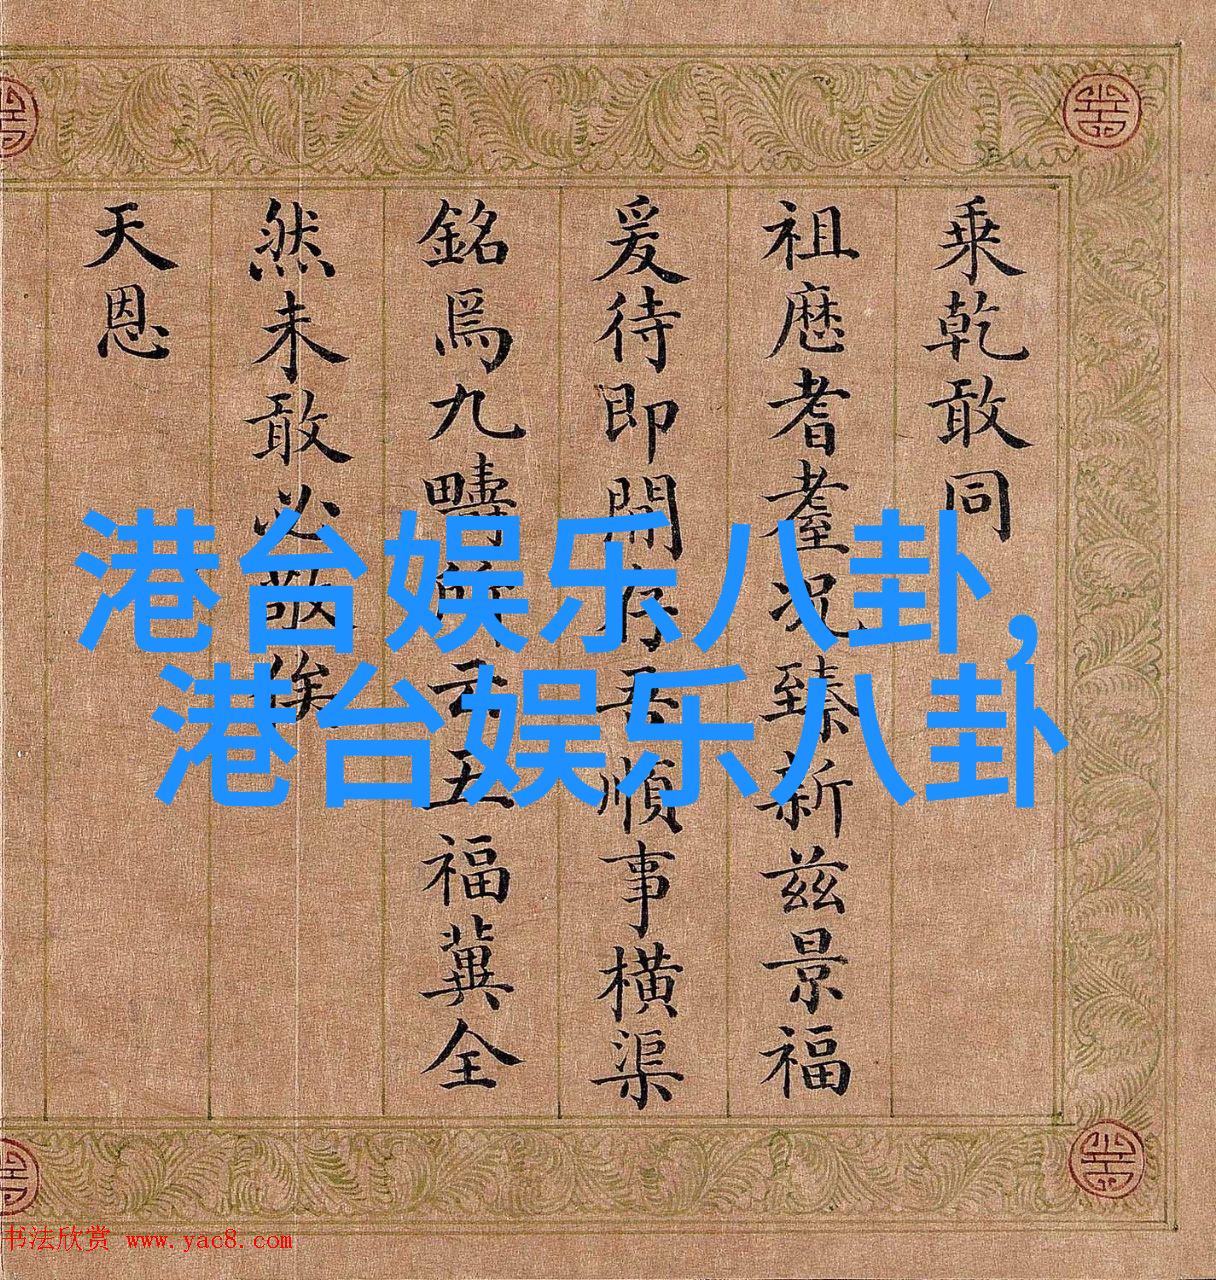 乗乾敢同
祖歷耆耋况臻新兹景福
爰待即開存吾順事橫渠
銘爲九疇 云五福冀全
然未敢必敬俟
天恩
港台娱乐八卦，
港台娱乐八卦
书法欣赏 www.yac8.com